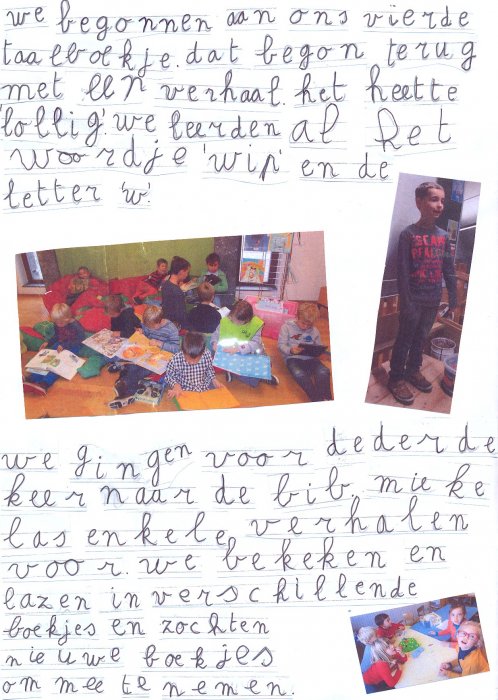 we begonnen aan ons vierde
taalboekje. dat begon terug
met een verhaal. het heette
'lollig'. we leerden al het
woordje 'wip' en de
letter 'w'.
we gingen voor de derde
keer naar de bib. mieke
las enkele verhalen
voor. we bekeken en
lazen in verschillende
boekjes en zochten
nieuwe boekjes
om mee te nemen.